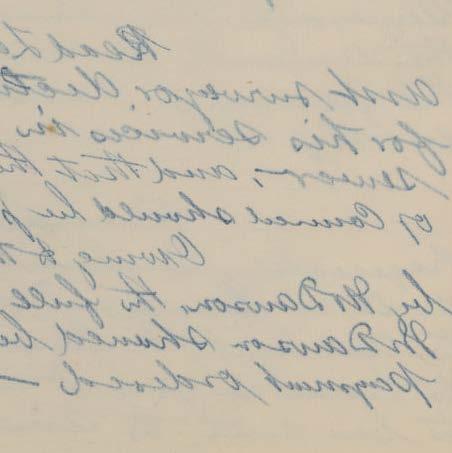 Read
and surveyor
for his services in
sewer, and that th
of Council should be p
Owing to
by Mr Dawson, the full
Mr Dawson should be
payment ordered —